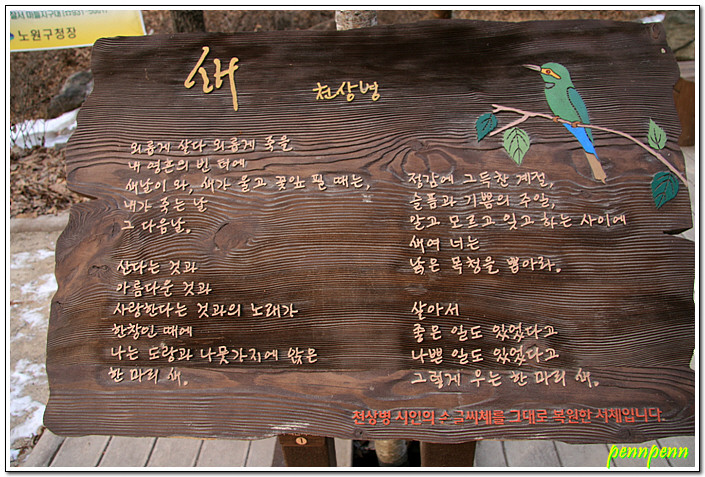 노원구청장
새
천상병
외롭게 살다 외롭게 죽을
내 영혼의 빈 터에
새날이 와, 새가 울고 꽃잎 필 때는,
내가 죽는 날
그 다음날.
산다는 것과
아름다운 것과
사랑한다는 것과의 노래가
한창인 때에
나는 도랑과 나뭇가지에 앉은
한 마리 새.
정감에 그득찬 계절,
슬픔과 기쁨의 주일,
알고 모르고 잊고 하는 사이에
새여 너는
낡은 목청을 뽑아라.
살아서
좋은 일도 있었다고
나쁜 일도 있었다고
그렇게 우는 한 마리 새.
천상병 시인의 손 글씨체를 그대로 복원한 서체입니다.
pennpenn